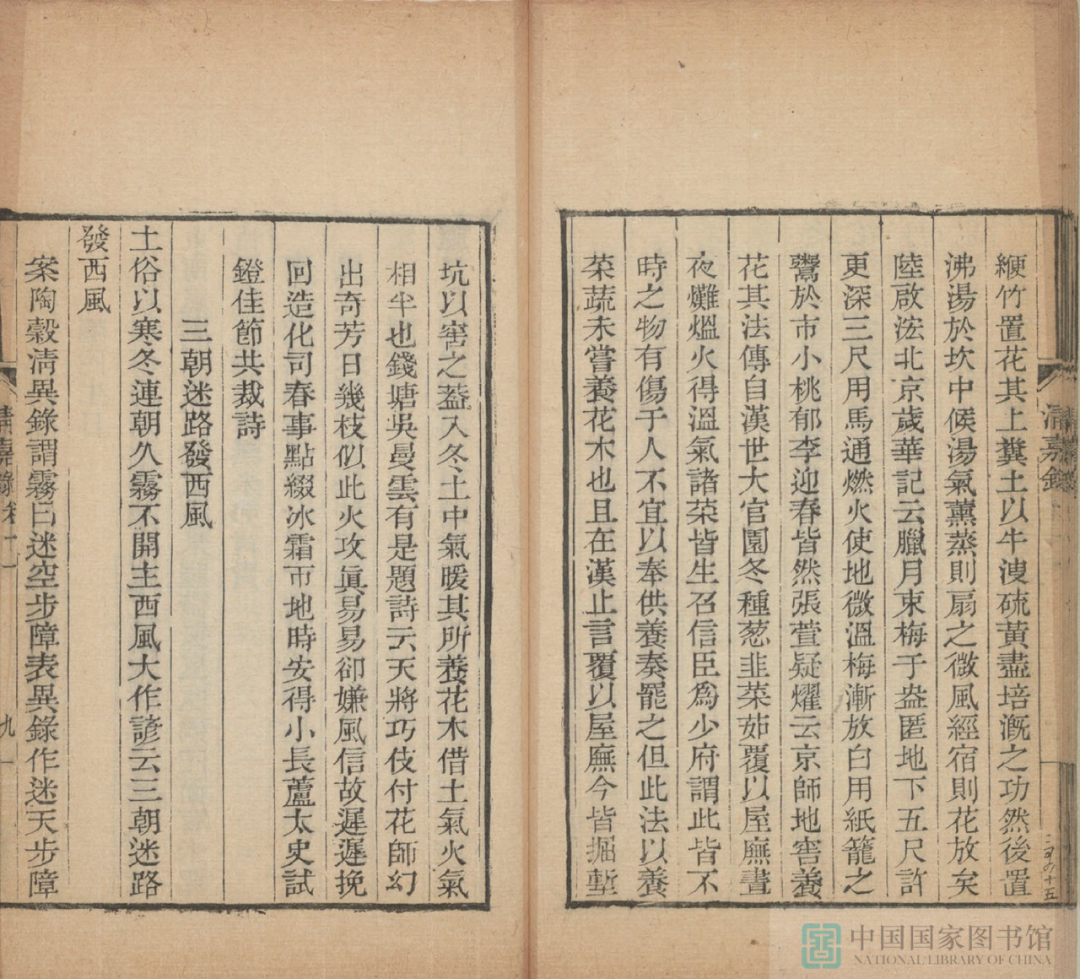 綆竹置花其上糞土以牛溲硫黃盡培溉之功然後置
沸湯於坎中候湯氣薰蒸則扇之微風經宿則花放矣
陸啟浤北京歲華記云臘月束梅于盎匿地下五尺許
更深三尺用馬通燃火使地微溫梅漸放白用紙籠之
鬻於市小桃郁李迎春皆然張萱疑燿云京師地窖養
花其法傳自漢世大官園冬種葱韭菜茹覆以屋廡晝
夜㸐熅火得溫氣諸菜皆生召信臣為少府謂此皆不
時之物有傷于人不宜以奉供養奏罷之但此法以養
菜蔬未嘗養花木也且在漢止言覆以屋廡今皆掘塹
坑以窖之蓋入冬土中氣暖其所養花木借土氣火氣
相半也錢塘吳曼雲有是題詩云天將巧伎付花師幻
出奇芳日幾枝似此火攻眞易易卻嫌風信故遲遲挽
回造化司春事點綴冰霜帀地時安得小長蘆太史試
鐙佳節共裁詩
三朝迷路發西風
土俗以寒冬連朝久霧不開主西風大作諺云三朝迷路
發西風
案陶穀清異錄謂霧曰迷空步障表異錄作迷天步障
清嘉錄
清嘉錄 卷十一
九
中国国家图书馆
NATIONAL LIBRARY OF CHINA